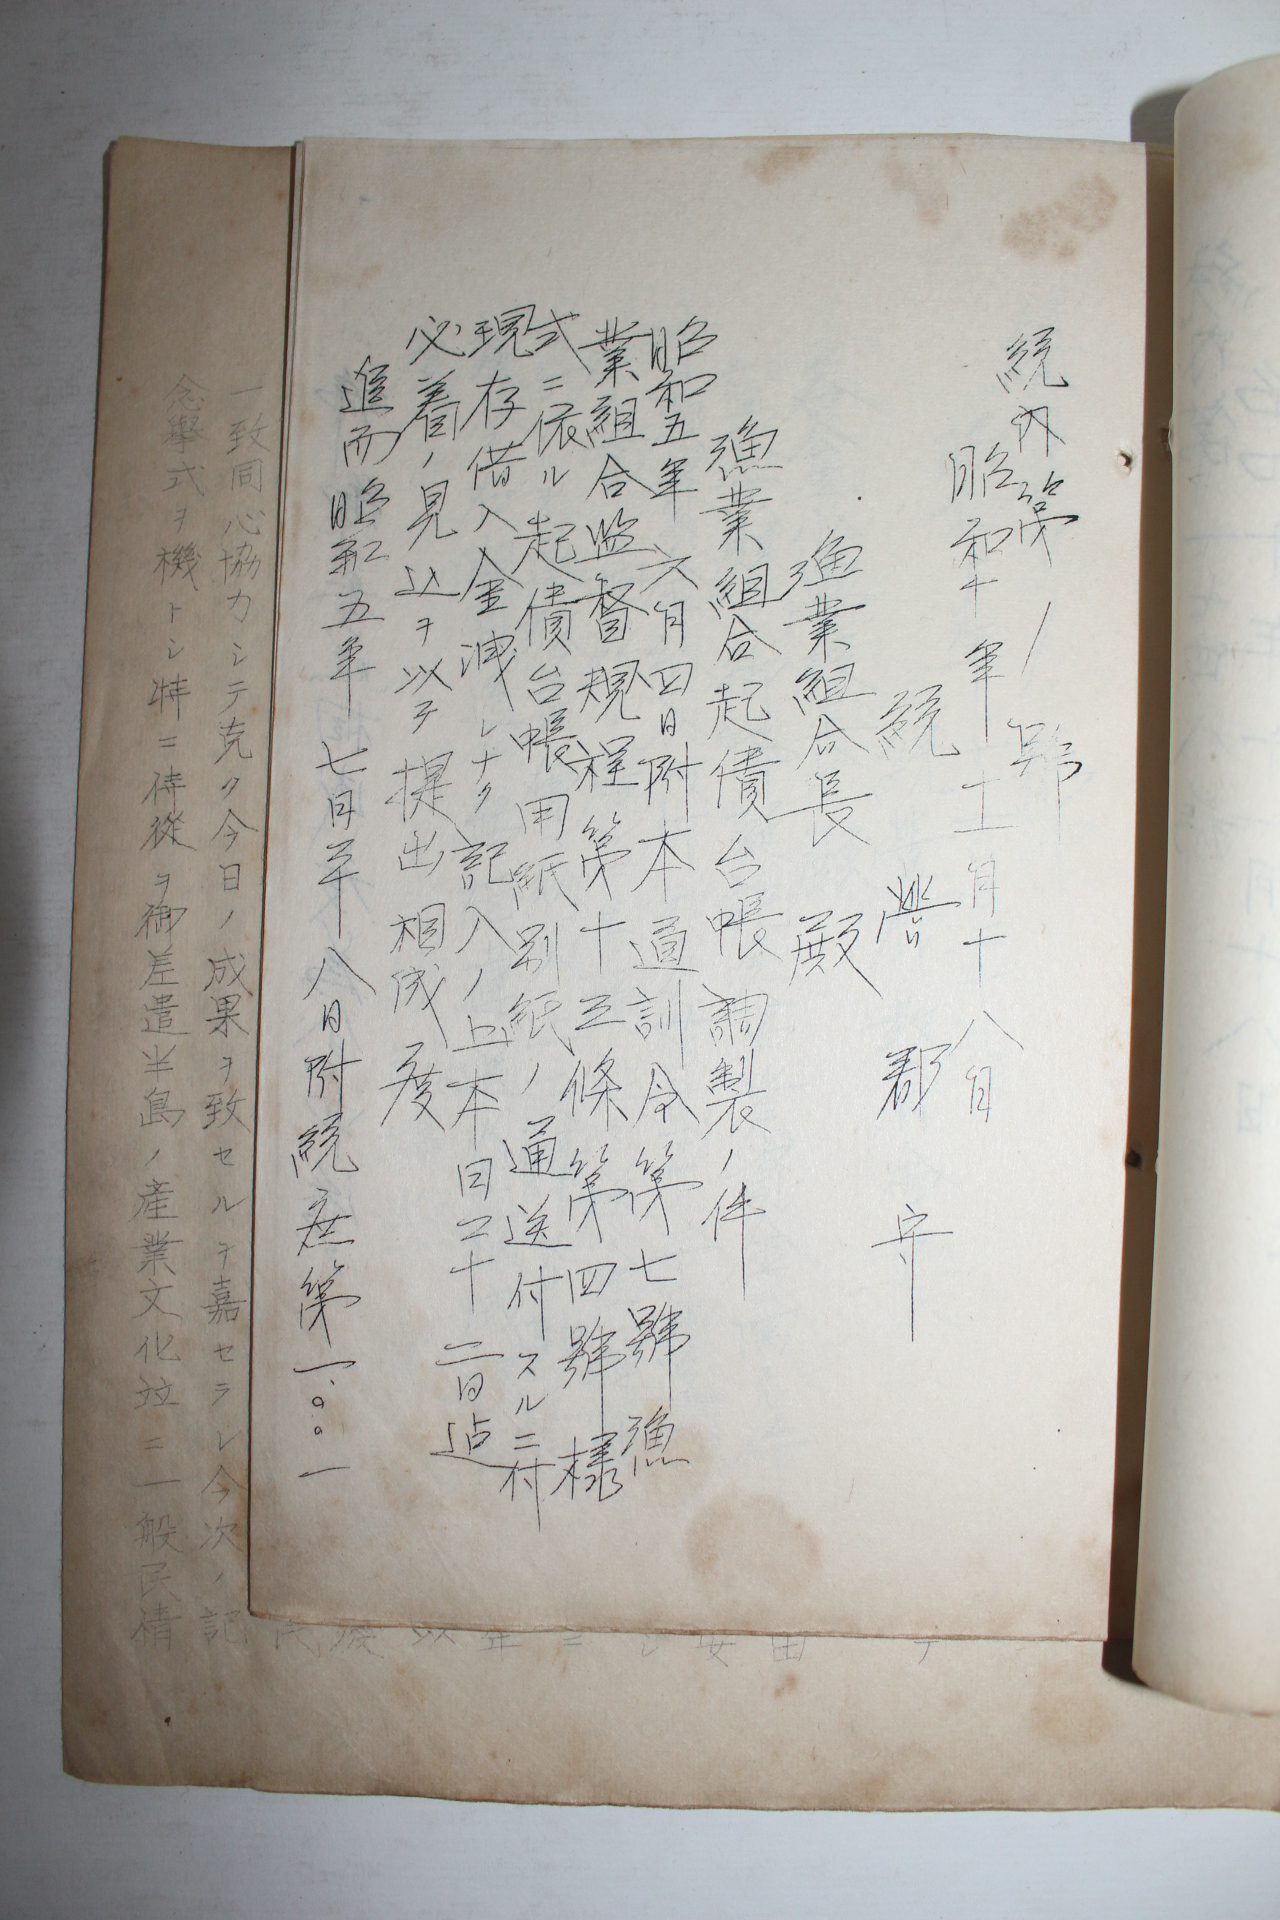 統内第 號
昭和十年十一月十八日
統營郡守
漁業組合長殿
漁業組合起債台帳調製ノ件
昭和五年六月四日附本道訓令第七號漁
業組合監督規程第十三條第四號樣
式ニ依ル起債台帳用紙別紙ノ通送付スルニ付
現存借入金洩レナク記入ノ上本月二十二日迠
必着ノ見込ヲ以テ提出相成度
追而昭和五年七月二十八日附統庶第一〇〇一
一致同心協力シテ克ク今日ノ成果ヲ致セルヲ嘉セラレ今次ノ記
念擧式ヲ機トシ特ニ侍從ヲ御差遣半島ノ產業文化竝ニ一般民情